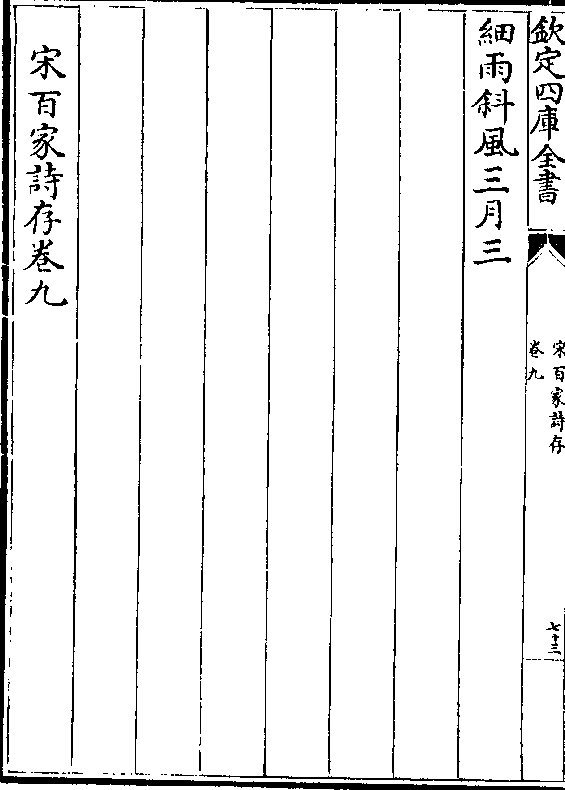 欽定四庫全書
宋百家詩存
卷九
七十三
細雨斜風三月三
宋百家詩存卷九